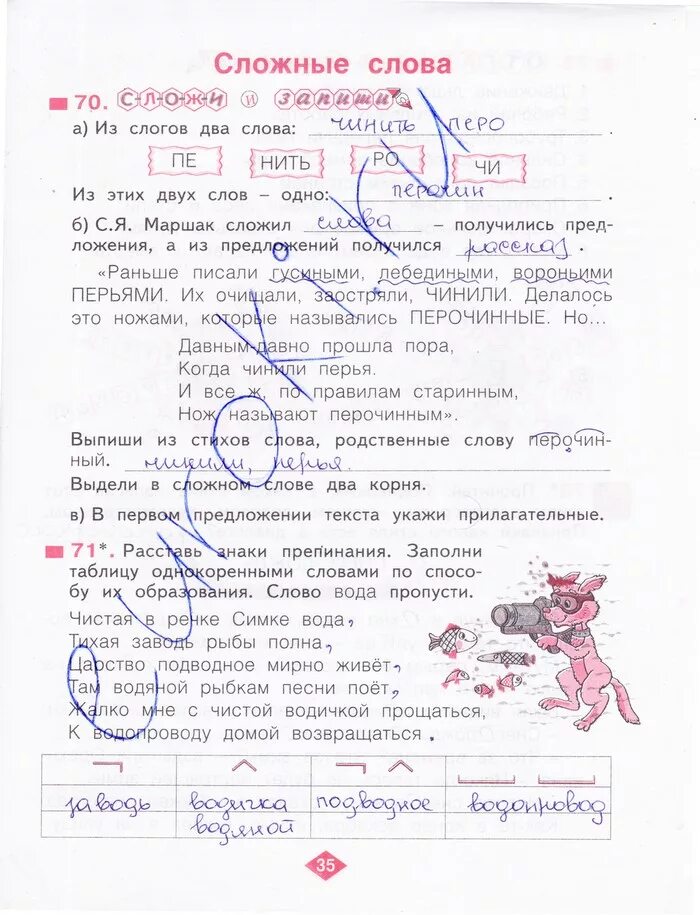 Сложные слова
70. С-Л-О-Ж-И и запиши
а) Из слогов два слова: чинить перо.
ПЕ НИТЬ РО ЧИ
Из этих двух слов – одно: перочин.
б) С.Я. Маршак сложил слова – получились пред-
ложения, а из предложений получился рассказ.
«Раньше писали гусиными, лебедиными, вороньими
ПЕРЬЯМИ. Их очищали, заостряли, ЧИНИЛИ. Делалось
это ножами, которые назывались ПЕРОЧИННЫЕ. Но...
Давным-давно прошла пора,
Когда чинили перья.
И все ж, по правилам старинным,
Нож называют перочинным».
Выпиши из стихов слова, родственные слову перочин-
ный. чинили, перья.
Выдели в сложном слове два корня.
в) В первом предложении текста укажи прилагательные.
71*. Расставь знаки препинания. Заполни
таблицу однокоренными словами по спосо-
бу их образования. Слово вода пропусти.
Чистая в речке Симке вода,
Тихая заводь рыбы полна,
Царство подводное мирно живёт,
Там водяной рыбкам песни поёт,
Жалко мне с чистой водичкой прощаться,
К водопроводу домой возвращаться.
заводь водичка подводное водопровод
водяной
35